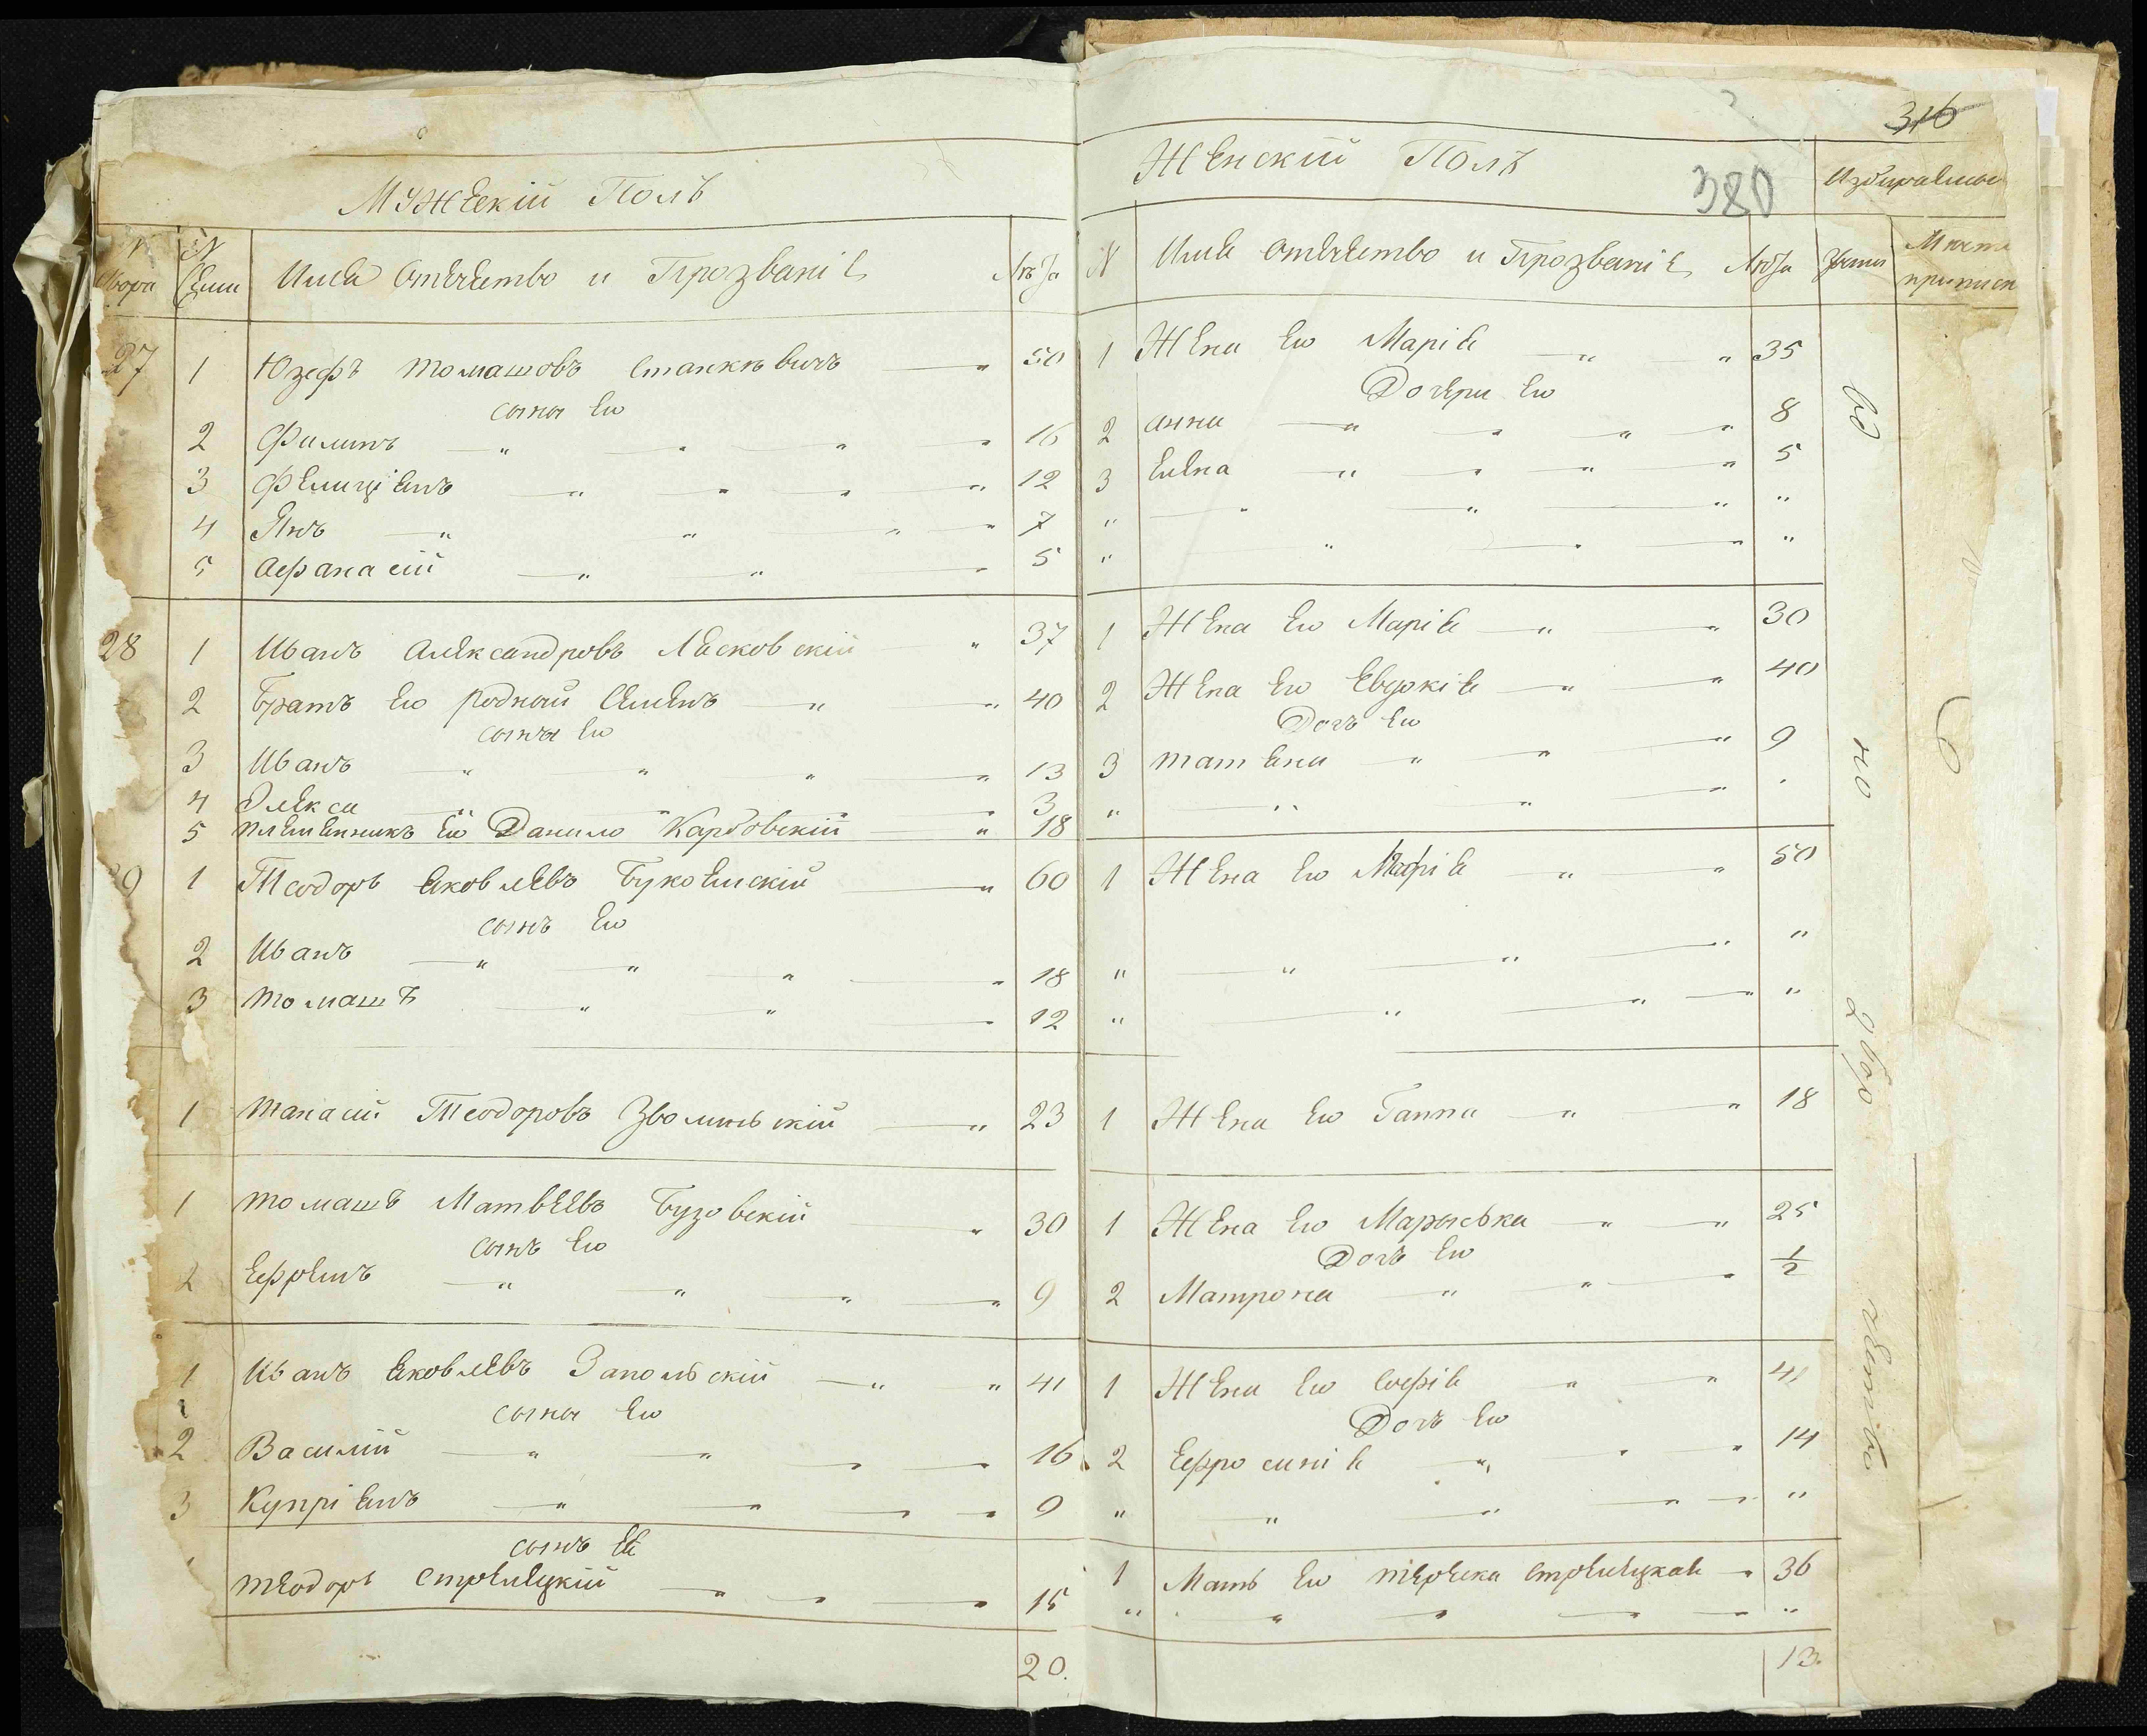 316
380
Мужескій Полъ
N двора
N Семи
Имя Отечество и Прозваніе
Лѣта
27 1 Юзефъ Томашовъ Станкѣвичъ 50
сыны Его
2 Филипъ 16
3 Фелиціянъ 12
4 Янъ 7
5 Афанасій 5
28 1 Иванъ Александровъ Лясковскій 37
2 Братъ Его родный Семенъ 40
сыны Его
3 Иванъ 13
4 Олекса 3
5 племенникъ Его Данило Карбовскій 18
29 1 Теодоръ Яковлевъ Букоемскій 60
сынъ Его
2 Иванъ 18
3 Томашъ 12
1 Танасій Теодоровъ Зволиньскій 23
1 Томашъ Матвеевъ Бузовскій 30
сынъ Его
2 Ефремъ 9
1 Иванъ Яковлевъ Запольскій 41
сыны Его
2 Василій 16
3 Купріянъ 9
сынъ Ея
Теодоръ Стрелецкій 15
20.
Женскій Полъ
N
Имя Отечество и Прозваніе
Лѣта
Мѣста приписк
1 Жена Его Марія 35
Дочери Его
2 Анна 8
3 Елена 5
1 Жена Его Марія 30
2 Жена Его Евдокія 40
Дочъ Его
3 Татяна 9
1 Жена Его Марія 50
1 Жена Его Ганна 18
1 Жена Его Марыська 25
Дочъ Его
2 Матрона 1/2
1 Жена Его Софія 41
Дочъ Его
2 Ефросинія 14
1 Мать Его Тереска Стрелецкая 36
13.